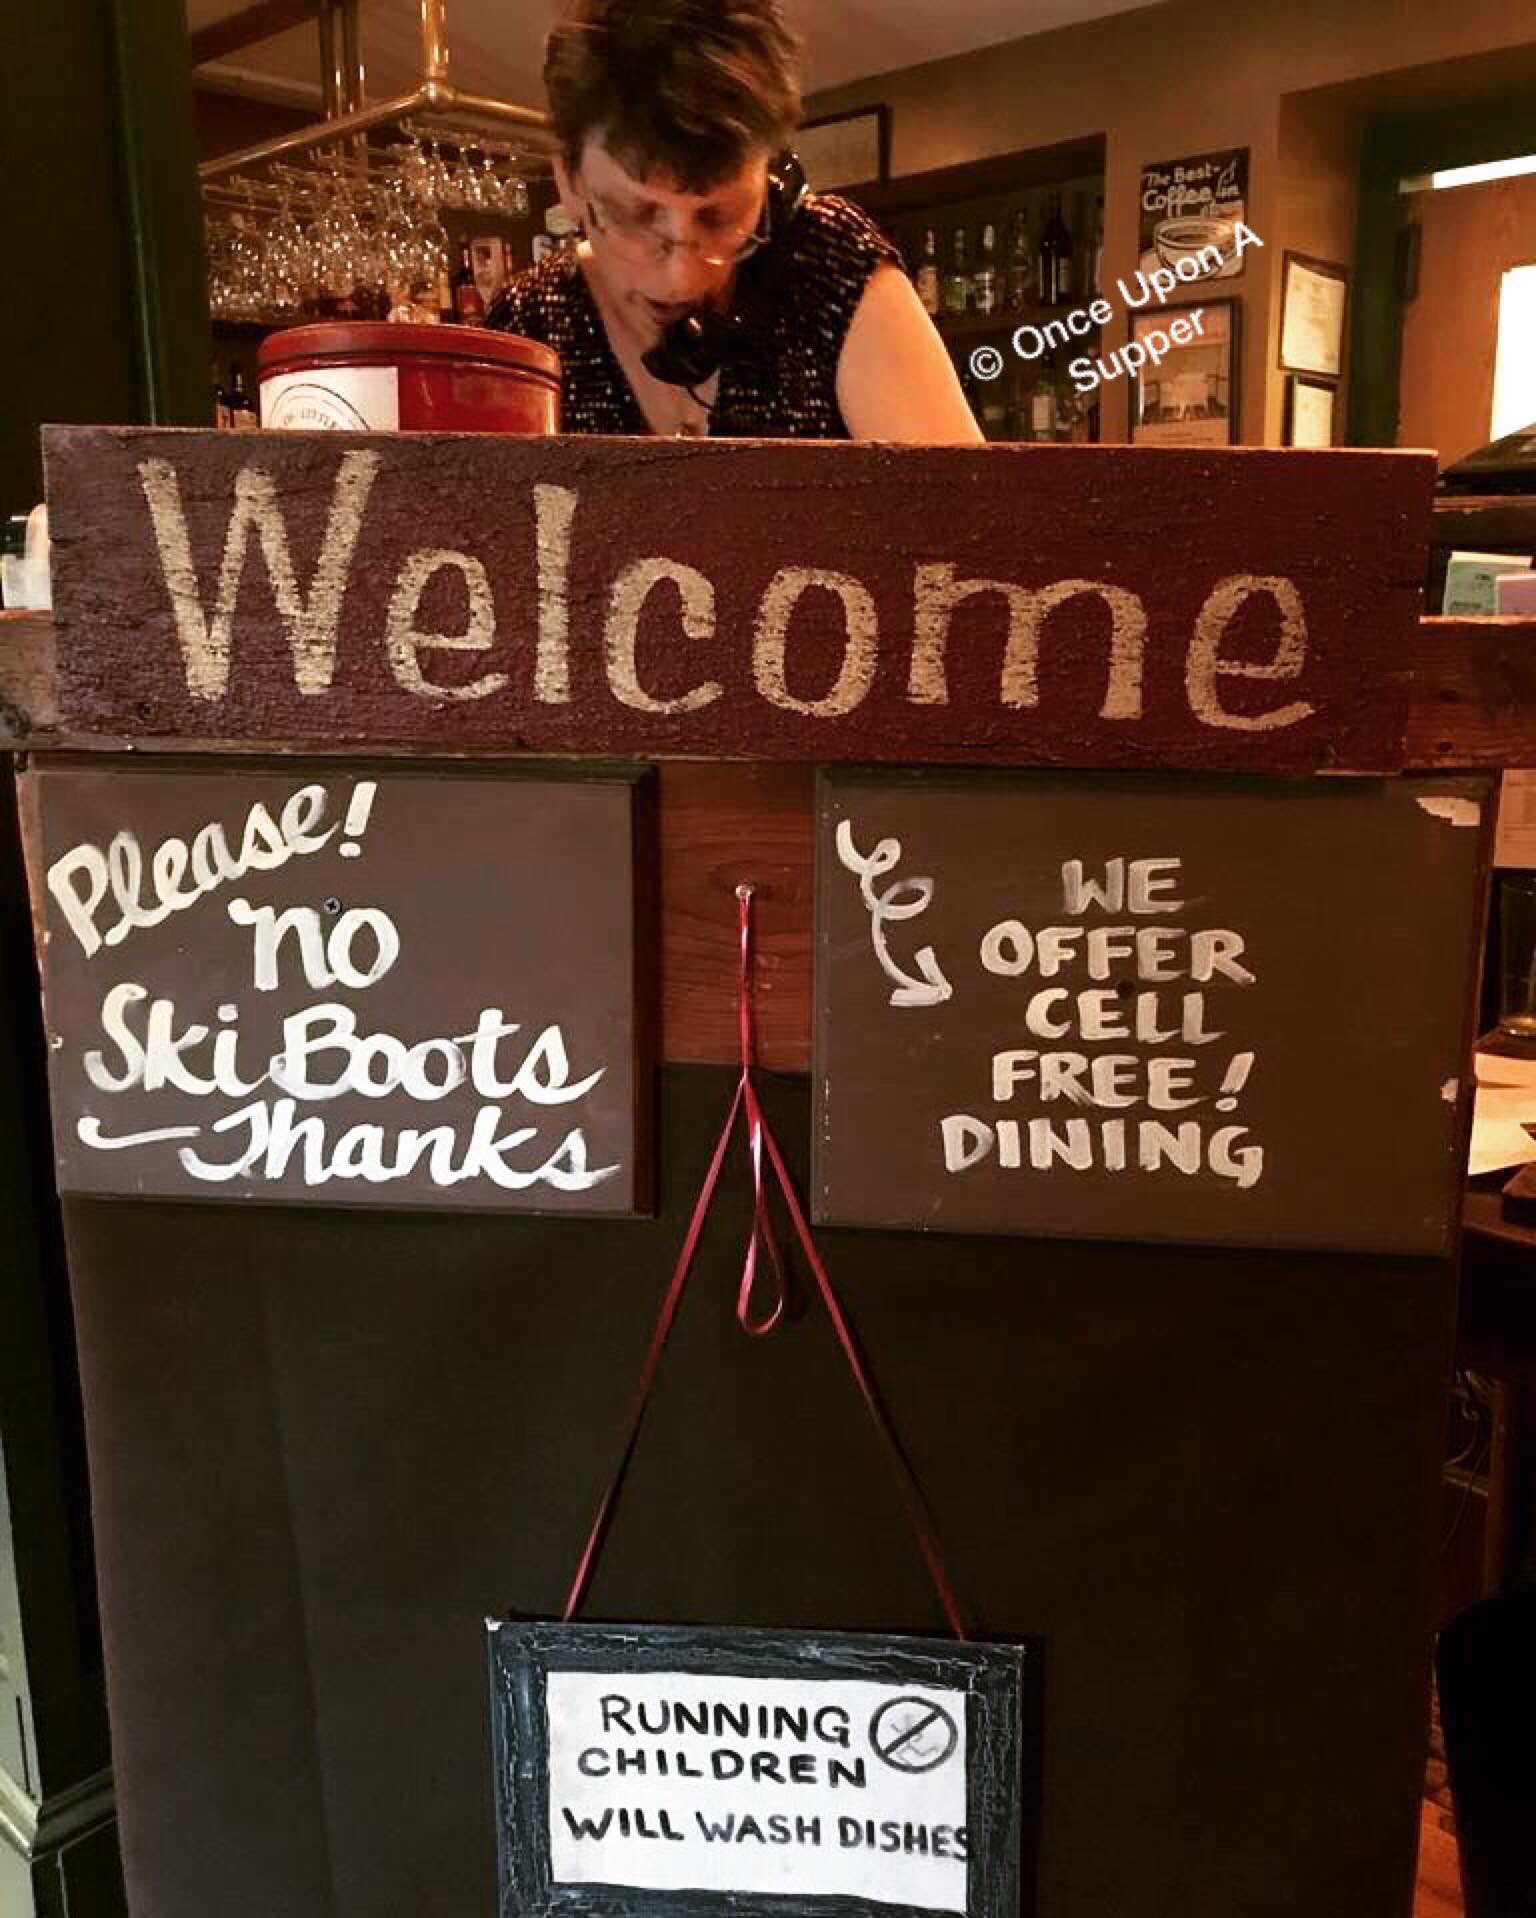 The Best
Coffee in
© Once Upon A
Supper
Welcome
Please!
no
Ski Boots
Thanks
WE
OFFER
CELL
FREE!
DINING
RUNNING
CHILDREN
WILL WASH DISHES